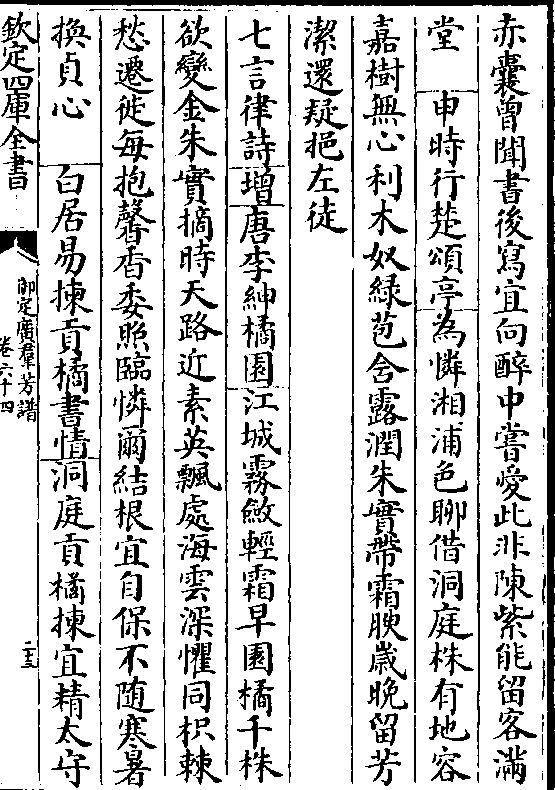 赤囊曾聞書後寫宜向醉中嘗愛此非陳紫能留客滿
堂　申時行楚頌亭為憐湘浦色聊借洞庭株有地容
嘉樹無心利木奴綠苞含露潤朱實帶霜腴歲晚留芳
潔還疑挹左徒
七言律詩增唐李紳橘園江城霧斂輕霜早園橘千株
欲變金朱實摘時天路近素英飄處海雲深懼同枳棘
愁遷徙每抱馨香委照臨憐爾結根宜自保不随寒暑
換貞心　白居易揀貢橘書情洞庭貢橘揀宜精太守
欽定四庫全書
御定廣羣芳譜
卷六十四
二十三